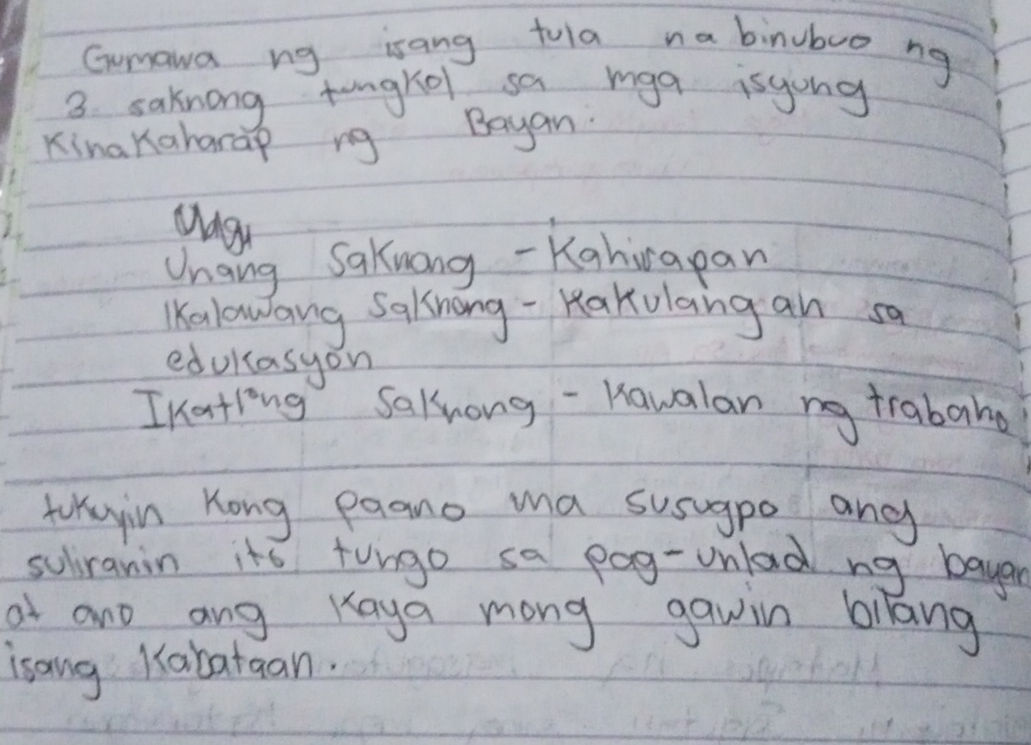 Gumawa ng isang tula na binubuo ng
3 saknong tungkol sa mga isyung
Kinakaharap ng Bayan.
Unang Saknong - Kahirapan
Ikalawang Saknong - Kakulangan sa
edukasyon
Ikatlong Saknong - Kawalan ng trabaho
tukuyin Kong paano ma susugpo ang
suliranin ito tungo sa pag-unlad ng bayan
at ano ang Kaya mong gawin bilang
isang Kabataan.